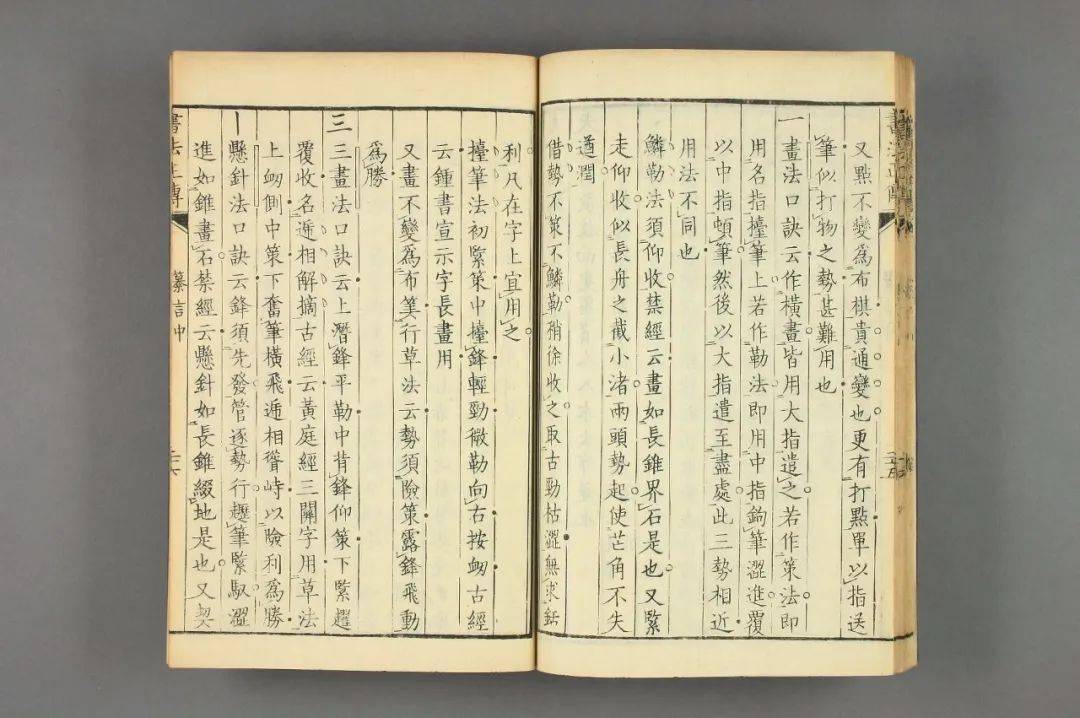 又點不變爲布棋貴通變也更有打點單以指送
筆似打物之勢甚難用也
一畫法口訣云作橫畫皆用大指遣之若作策法即
用名指擡筆上若作勒法即用中指鉤筆澀進覆
以中指頓筆然後以大指遣至盡處此三勢相近
用法不同也
鱗勒法須仰收禁經云畫如長錐界石是也又緊
走仰收似長舟之截小渚兩頭勢起使芒角不失
遒潤
借勢不策不鱗勒稍徐收之取古勁枯澀無求銛
利凡在字上宜用之
擡筆法初緊策中擡鋒輕勁微勒向右按衄古經
云鍾書宣示字長畫用
又畫不變爲布筭行草法云勢須險策露鋒飛動
爲勝
三三畫法口訣云上潛鋒平勒中背鋒仰策下緊趯
覆收名遞相解摘古經云黃庭經三關字用草法
上衄側中策下奮筆橫飛遞相聳峙以險利爲勝
丨懸針法口訣云鋒須先發管逐勢行趯筆緊馭澀
進如錐畫石禁經云懸針如長錐綴地是也又契
書法正傳
纂言中